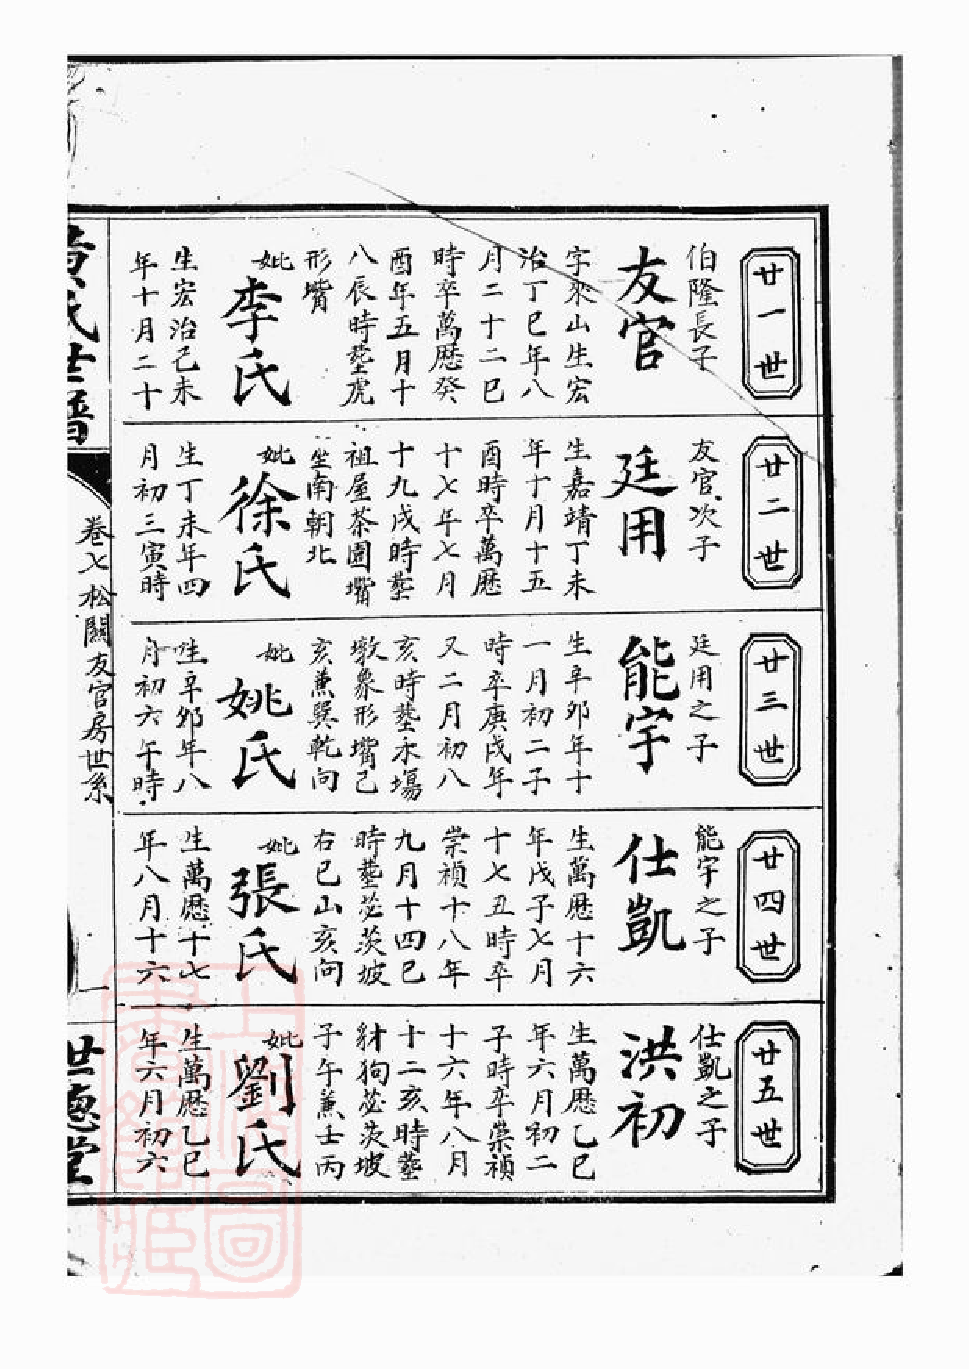 廿一世
伯隆長子
友官
字來山生宏
治丁巳年八
月二十二巳
時卒萬歷癸
酉年五月十
八辰時塟虎
形嘴
妣
李氏
生宏治己未
年十月二十
廿二世
友官次子
廷用
生嘉靖丁未
年十月十五
酉時卒萬歷
十七年七月
十九戌時塟
祖屋茶園嘴
坐南朝北
妣
徐氏
生丁未年四
月初三寅時
廿三世
廷用之子
能宇
生辛卯年十
一月初二子
時卒庚戌年
又二月初八
亥時塟木塲
墩象形嘴己
亥兼巽乾向
妣
姚氏
生辛卯年八
月初六午時
廿四世
能宇之子
仕凱
生萬歷十六
年戊子七月
十七丑時卒
崇禎十八年
九月十四巳
時塟苾茨坡
右巳山亥向
妣
張氏
生萬歷十七
年八月十六
廿五世
仕凱之子
洪初
生萬歷乙巳
年六月初二
子時卒崇禎
十六年八月
十二亥時塟
豺狗苾茨坡
子午兼壬丙
妣
劉氏
生萬歷乙巳
年六月初六
黃氏世譜
卷七松關友官房世系
一
世德堂